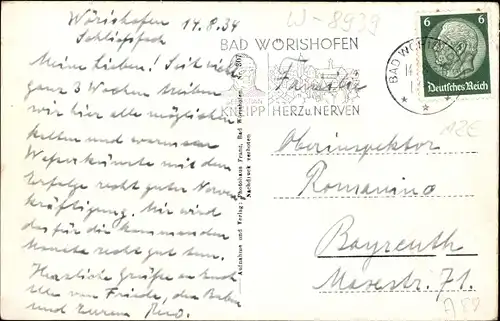 Wörishofen 14.8.34
Schließfach
Meine Lieben! Seit
ganz 3 Wochen treiben
wir hier alle möglichen
kalten und warmen
Wasserkünste mit dem
Erfolge recht guter Nerven
kräftigung. Mir wird
das für die kommenden
Monate recht gut tun.
Herzliche Grüße an Euch
alle von Friede,
und Eurem
Aufnahme und Verlag: Photohaus Franz, Bad Wörishofen.
Nachdruck verboten
W-8939
BAD WÖRISHOFEN
KNEIPP HERZ u. NERVEN
BAD WÖRISHOFEN
6 6
Deutsches Reich
Familie
Oberinspektor
Romanino
Bayreuth
71.